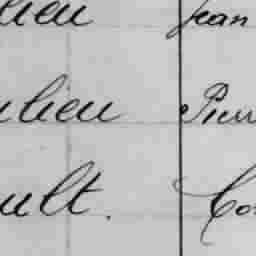 lieu Jean
ulieu Pierr
ult. Co